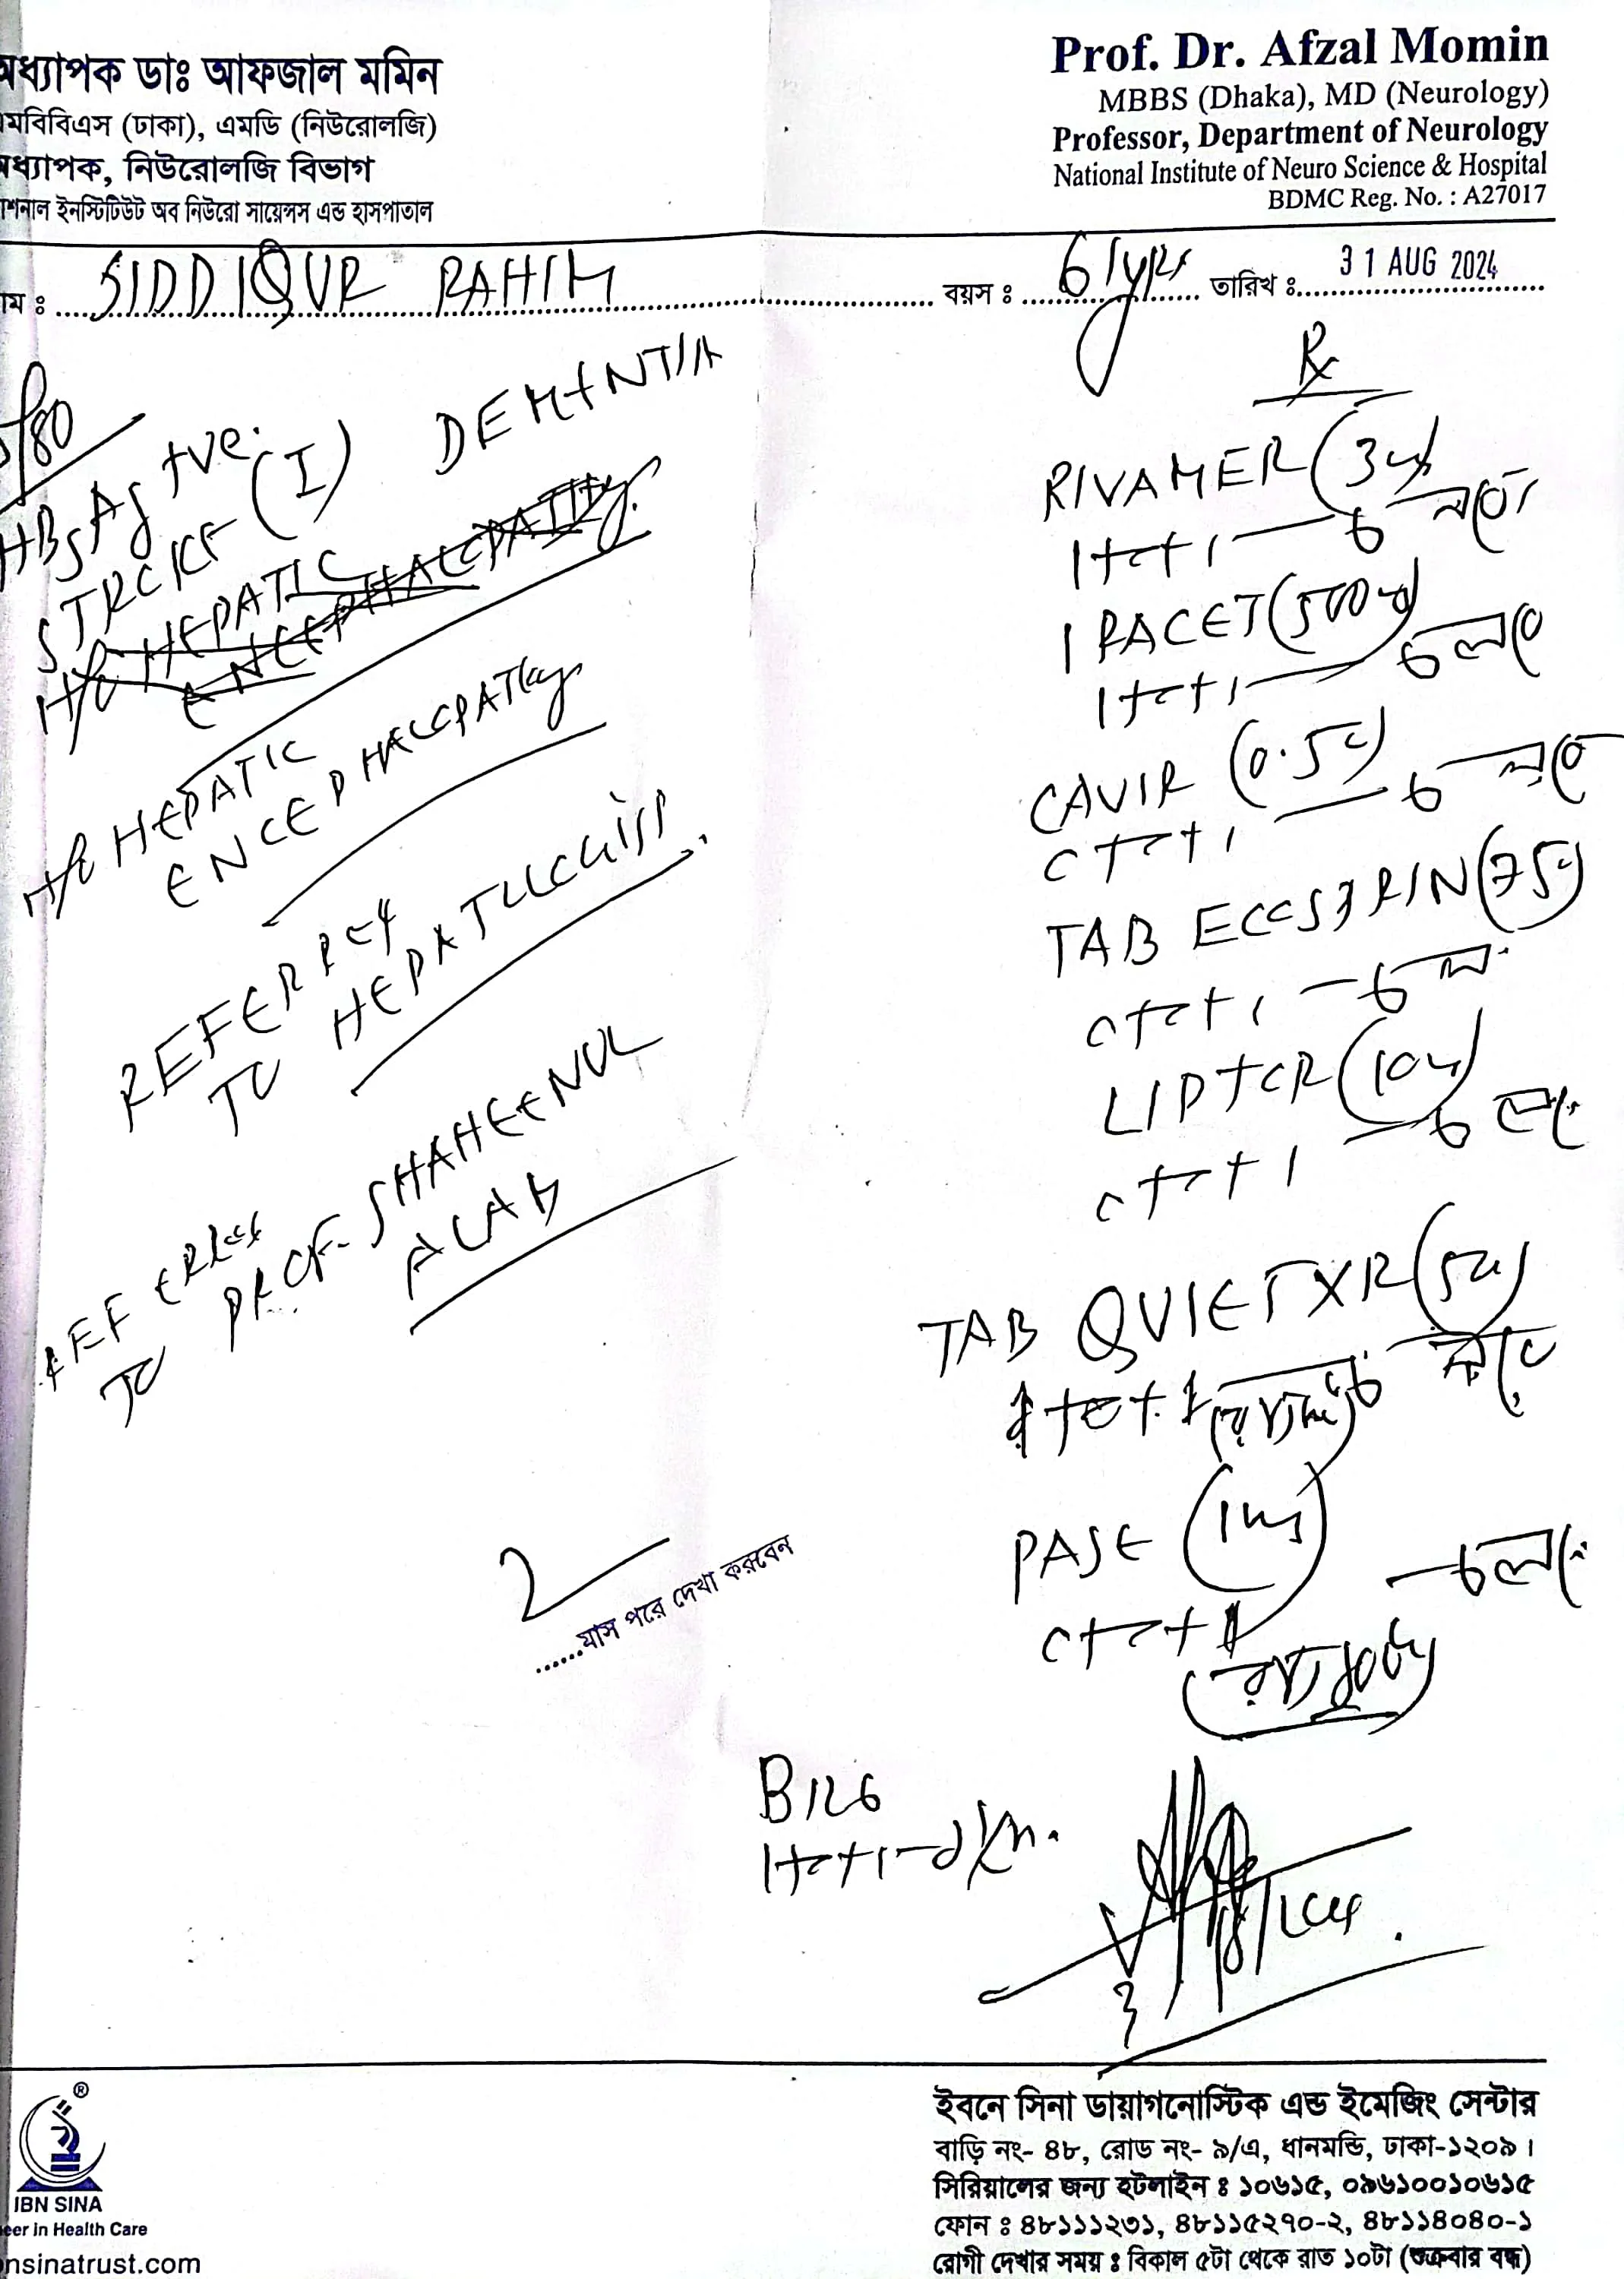 ধ্যাপক ডাঃ আফজাল মমিন
মবিবিএস (ঢাকা), এমডি (নিউরোলজি)
ধ্যাপক, নিউরোলজি বিভাগ
শনাল ইনস্টিটিউট অব নিউরো সায়েন্সস এন্ড হাসপাতাল
Prof. Dr. Afzal Momin
MBBS (Dhaka), MD (Neurology)
Professor, Department of Neurology
National Institute of Neuro Science & Hospital
BDMC Reg. No. : A27017
ম : SIDDIQUR RAHIM বয়স : 61yrs তারিখ : 31 AUG 2024
/80
HBsAg +ve.
STROKE (I) DEMENTIA
H/O HEPATIC
ENCEPHALOPATHY
H/O HEPATIC
ENCEPHALOPATHY
REFERRED
TO HEPATOLOGIST
REFERRED
TO PROF. SHAHEENUL
ALAM
2
......মাস পরে দেখা করবেন
Rx
RIVAMER (3
1+0+1 — চলবে
PACET (500
1+0+1 — চলবে
CAVIR (0.5
0+0+1 — চলবে
TAB ECOSPRIN (75
0+0+1 — চল
LIPTOR (10
0+0+1 — চলবে
TAB QUIET XR (50
+0+1 চলবে
PASE (1mg)
0+0+1 — চলবে
B126
1+0+1
ইবনে সিনা ডায়াগনোস্টিক এন্ড ইমেজিং সেন্টার
বাড়ি নং- ৪৮, রোড নং- ৯/এ, ধানমন্ডি, ঢাকা-১২০৯।
সিরিয়ালের জন্য হটলাইন : ১০৬১৫, ০৯৬১০০১০৬১৫
ফোন : ৪৮১১১২৩১, ৪৮১১৫২৭০-২, ৪৮১১৪০৪০-১
রোগী দেখার সময় : বিকাল ৫টা থেকে রাত ১০টা (শুক্রবার বন্ধ)
IBN SINA
eer in Health Care
nsinatrust.com